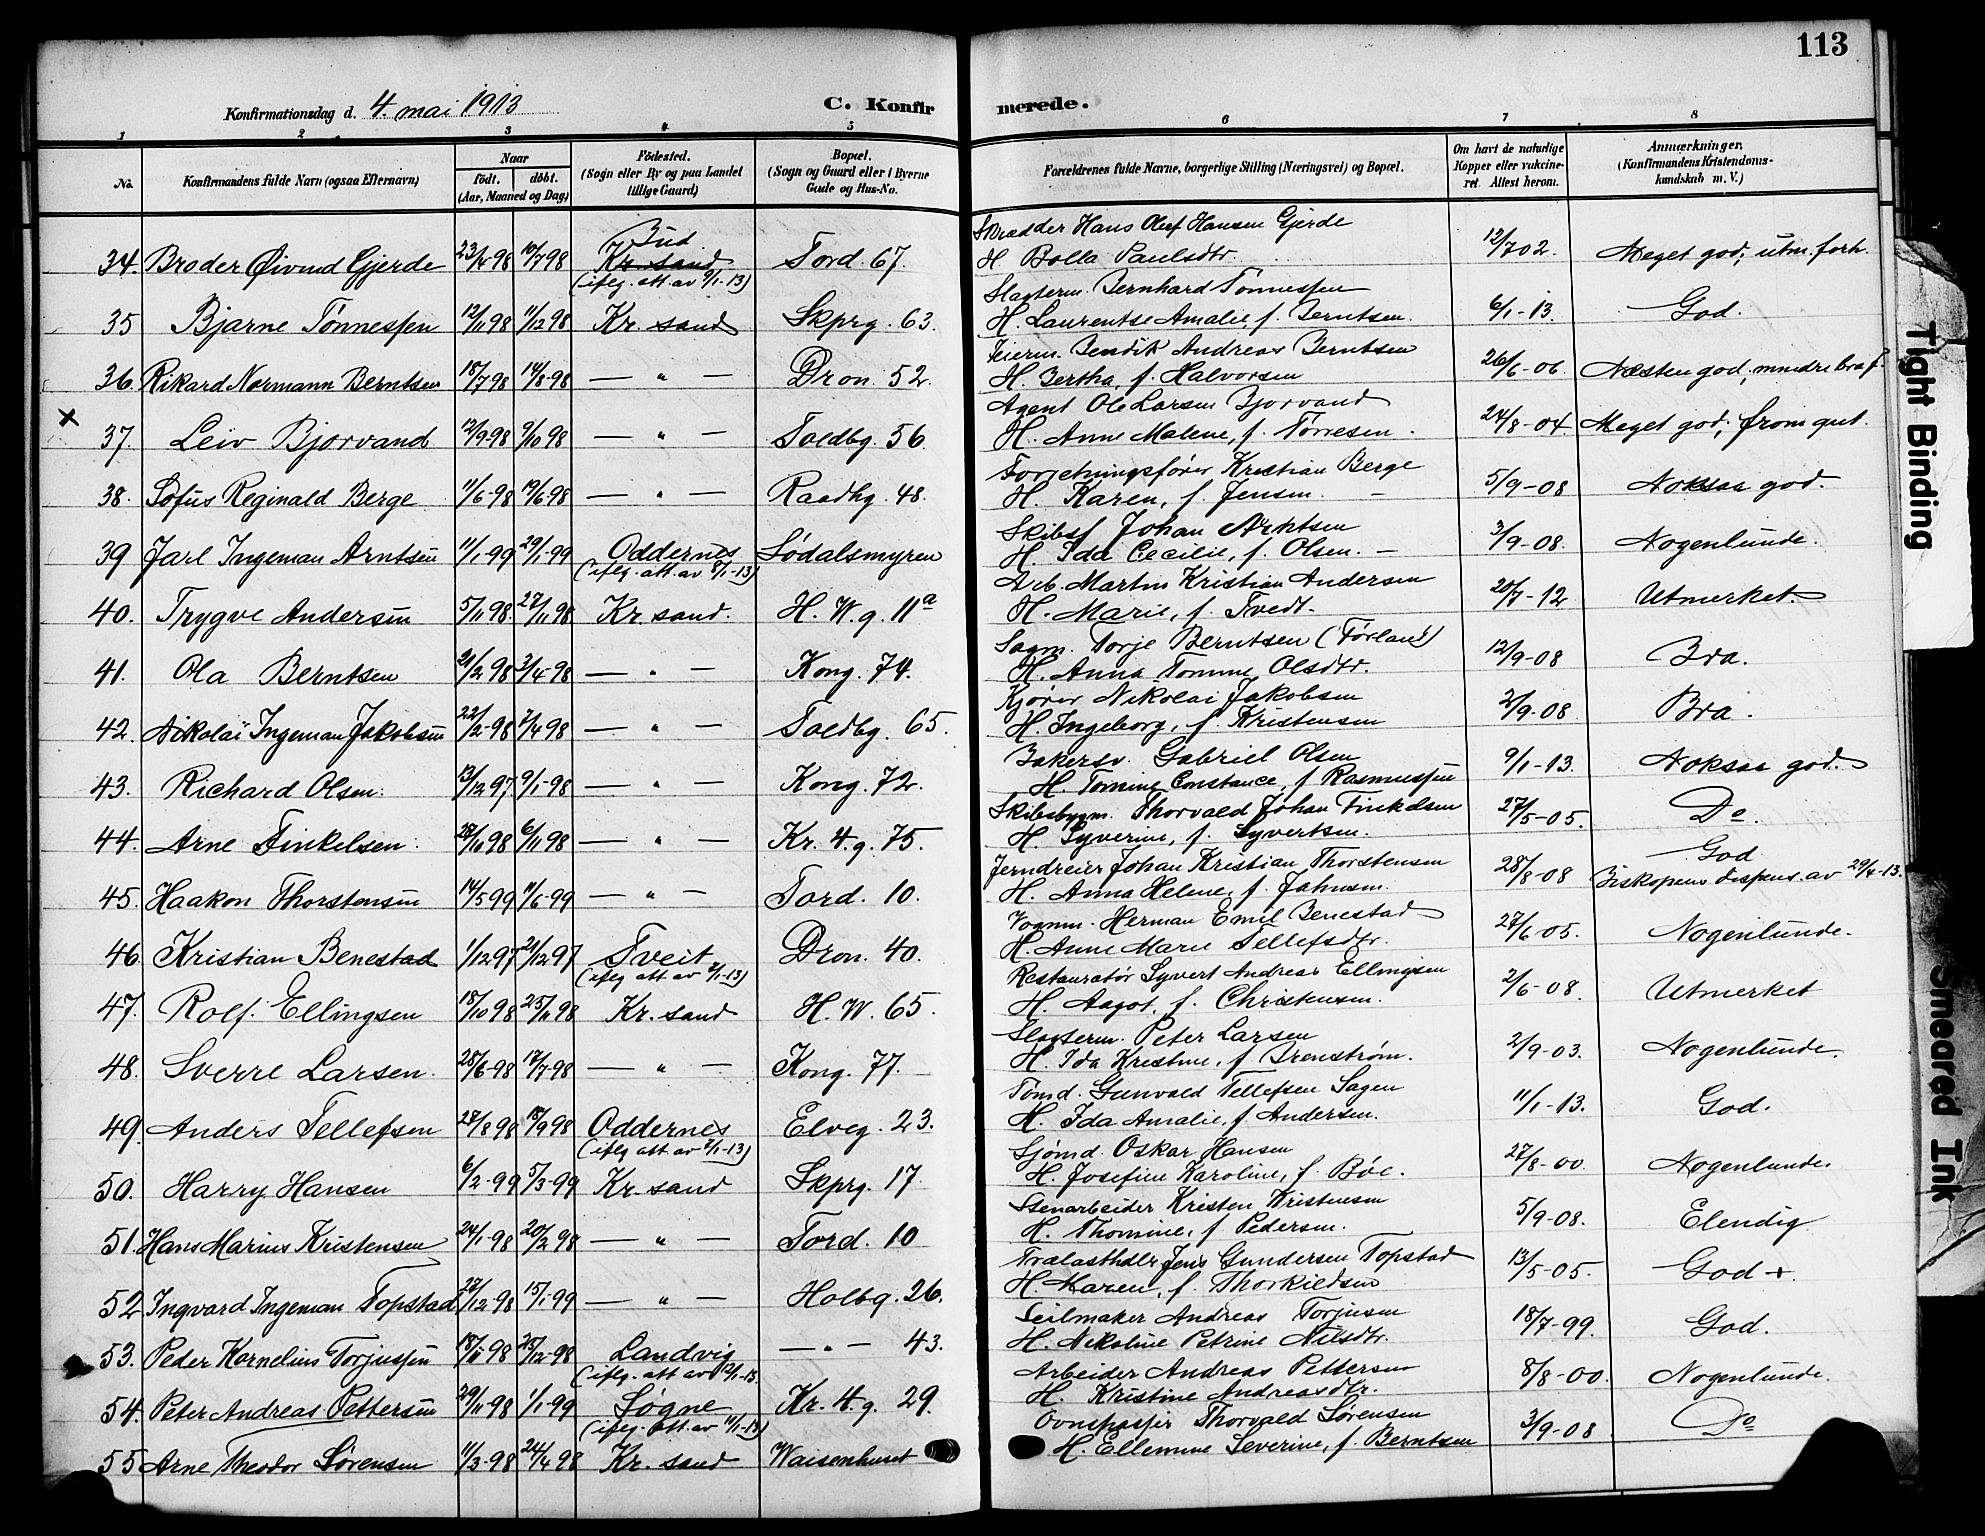 113
Konfirmationsdag d. 4. mai 1913
C. Konfirmerede.
1 2 3 4 5 6 7 8
No. Konfirmandens fulde Navn (ogsaa Efternavn) Naar født. døbt. (Aar, Maaned og Dag) Fødested. (Sogn eller By og paa Landet tillige Gaard) Bopæl. (Sogn og Gaard eller i Byerne Gade og Hus-No. Forældrenes fulde Navne, borgerlige Stilling (Næringsvei) og Bopæl. Om havt de naturlige Kopper eller vakcineret. Attest herom. Anmærkninger. (Konfirmandens Kristendomskundskab m. V.)
34. Broder Øivind Gjerde 23/4 98 10/7 98 Bud Kr. sand (ifølg. att. av 9/1-13) Tord. 67. Skrædder Hans Oluf Hansen Gjerde
H. Bolla Paulsdtr. 12/7 02. Meget god; utm. forh.
35 Bjarne Tönnessen 12/11 98 11/12 98 Kr. sand Skprg. 63. Slagterm. Bernhard Tønnessen
H. Laurentse Amalie f. Berntsen. 6/1-13. God.
36. Rikard Normann Berntsen 18/7 98 14/8-98 — " — Dron. 52. Feierm. Bendik Andreas Berntsen
H. Bertha, f. Halvorsen 26/6-06 Næsten god; mindre bra f.
× 37. Leiv Bjorvand 12/9-98 9/10 98 — " — Toldbg. 56. Agent Ole Larsen Bjorvand
H. Anne Malene, f. Tørresen. 24/8-04 Meget god; from gut.
38. Sofus Reginald Berge 11/6-98 19/6-98 — " — Raadhg. 48. Forretningsfører Kristian Berge
H. Karen, f. Jensen. 5/9-08 Noksaa god.
39 Jarl Ingeman Arntsen 11/1-99 29/1-99 Oddernes (ifølg. att. av 8/1-13) Sødalsmyren Skibsf Johan Arntsen
H. Ida Cecilie, f. Olsen. — 3/9-08. Nogenlunde.
40. Trygve Andersen 5/11 98. 27/11 98 Kr. sand. H. W. g. 11a Arb. Martin Kristian Andersen
H. Marie, f. Tvedt. 20/7-12 Utmerket.
41. Ola Berntsen 21/2 98 3/4-98 — " — Kong. 74. Sagm. Torje Berntsen (Førland)
H. Anna Tomine Olsdtr. 12/9-08 Bra.
42. Nikolai Ingeman Jakobsen 22/2-98 7/4 98 — " — Toldbg. 65. Kjører Nikolai Jakobsen
H. Ingeborg, f. Kristensen 2/9-08 Bra.
43. Richard Olsen. 13/12 97 9/1-98 — " — Kong. 72. Bakersv. Gabriel Olsen
H. Tomine Constance, f. Rasmussen 9/1-13. Noksaa god.
44. Arne Finkelsen. 28/10 98 6/11 98 — " — Kr. 4. g. 75. Skibsbygm. Thorvald Johan Finkelsen
H. Syverine, f. Syvertsen. 27/5-05. Do
45. Haakon Thorstensen 14/5 99 11/6-99 — " — Tord. 10. Jerndreier Johan Kristian Thorstensen
H. Anna Helene, f. Jahnsen. 28/8-08 God
Biskopens dispens. av 29/4-13.
46. Kristian Benestad 1/12 97 21/12 97 Tveit (ifølg att av 7/1-13) Dron. 40. Vognm. Herman Emil Benestad
H. Anne Marie Tellefsdtr. 27/6-05. Nogenlunde.
47. Rolf Ellingsen 18/10 98 25/11 98 Kr. sand H. W. 65. Restauratør Syvert Andreas Ellingsen
H. Aagot, f. Christensen. 2/6-08. Utmerket
48. Sverre Larsen. 25/6-98 17/7-98 — " — Kong. 77. Slagterm. Peter Larsen
H. Ida Kristine, f. Brenstrøm. 2/9-03. Nogenlunde.
49. Anders Tellefsen 27/8 98 18/9 98 Oddernes (ifølg att av 7/1-13) Elveg. 23. Tømd. Gunvald Tellefsen Sagen
H. Ida Amalie, f. Andersen. 11/1-13. God.
50. Harry Hansen 6/2-99 5/3-99 Kr. sand Skprg. 17. Sjømd. Oskar Hansen
H. Josefine Karoline, f. Bøe. 27/8-00 Nogenlunde.
51. Hans Marius Kristensen 24/1-98 20/2 98 — " — Tord. 10 Stenarbeider Kristen Kristensen
H. Thomine, f. Pedersen. 5/9-08. Elendig
52. Ingvard Ingeman Topstad 27/12-98 15/1-99 — " — Holbg. 26. Trælasthdlr Jens Gundersen Topstad
H. Maren, f. Thorkildsen 13/5-05. God +.
53. Peder Kornelius Torjussen 18/11 98 25/12-98 Landvig (ifølg. att av 12/1-13. — " — 43. Seilmaker Andreas Torjusen
H. Nikoline Petrine Nilsdtr. 18/7-99. God.
54. Peter Andreas Pettersen 29/11 98 1/1-99 Søgne (ifølg. att. av 11/1-13) Kr. 4. g. 29. Arbeider Andreas Pettersen
H. Kristine Andreasdtr. 8/8-00. Nogenlunde.
55 Arne Theodor Sørensen 11/3-98 24/4 98 Kr. sand Waisenhuset Ovnspasser Thorvald Sørensen
H. Ellemine Severine, f. Berntsen 3/9-08 Do
Tight Binding
Smeared Ink